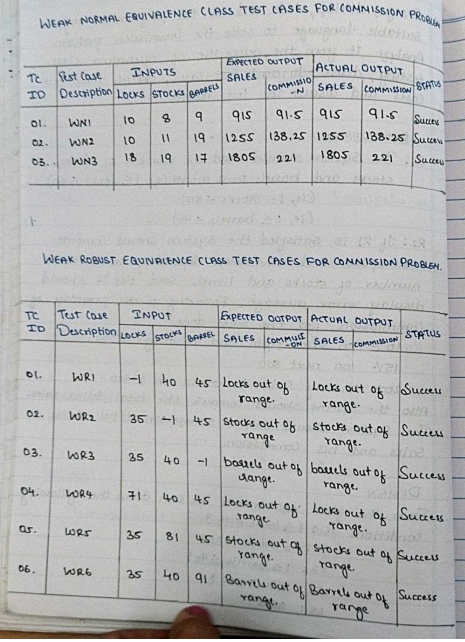 WEAK NORMAL EQUIVALENCE CLASS TEST CASES FOR COMMISSION PROBLEM
TC ID Test Case Description INPUTS LOCKS STOCKS BARRELS EXPECTED OUTPUT SALES COMMISSIO-N ACTUAL OUTPUT SALES COMMISSION STATUS
01. WN1 10 8 9 915 91.5 915 91.5 Success
02. WN2 10 11 19 1255 138.25 1255 138.25 Success
03. WN3 18 19 17 1805 221 1805 221 Success
WEAK ROBUST EQUIVALENCE CLASS TEST CASES FOR COMMISSION PROBLEM.
TC ID Test Case Description INPUT LOCKS STOCKS BARREL EXPECTED OUTPUT SALES COMMISSI-ON ACTUAL OUTPUT SALES COMMISSION STATUS
01. WR1 -1 40 45 Locks out of Locks out of Success
range. range.
02. WR2 35 -1 45 Stocks out of Stocks out of Success
range range.
03. WR3 35 40 -1 barrels out of barrels out of Success
range. range.
04. WR4 71 40 45 Locks out of Locks out of Success
range range.
05. WR5 35 81 45 Stocks out of Stocks out of Success
range. range.
06. WR6 35 40 91 Barrels out of Barrels out of Success
range. range